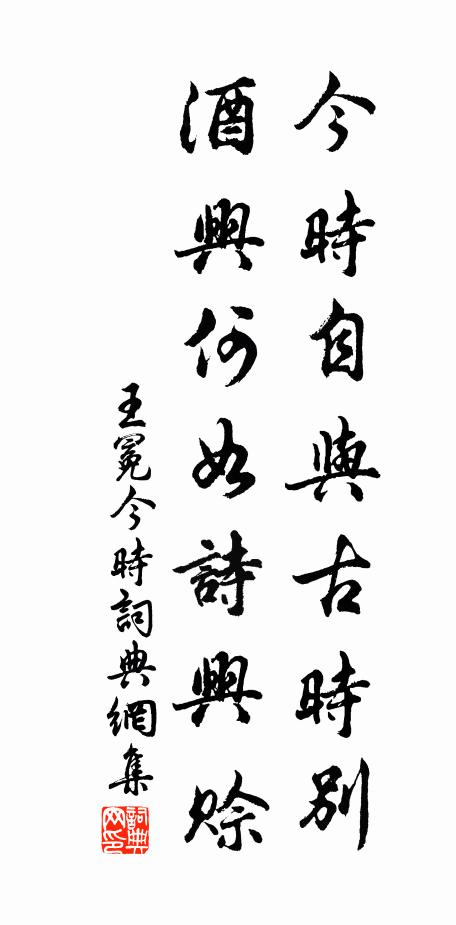 今時自與古時別
酒興何如詩興賒
王冕今時詞典網集
詞典網印